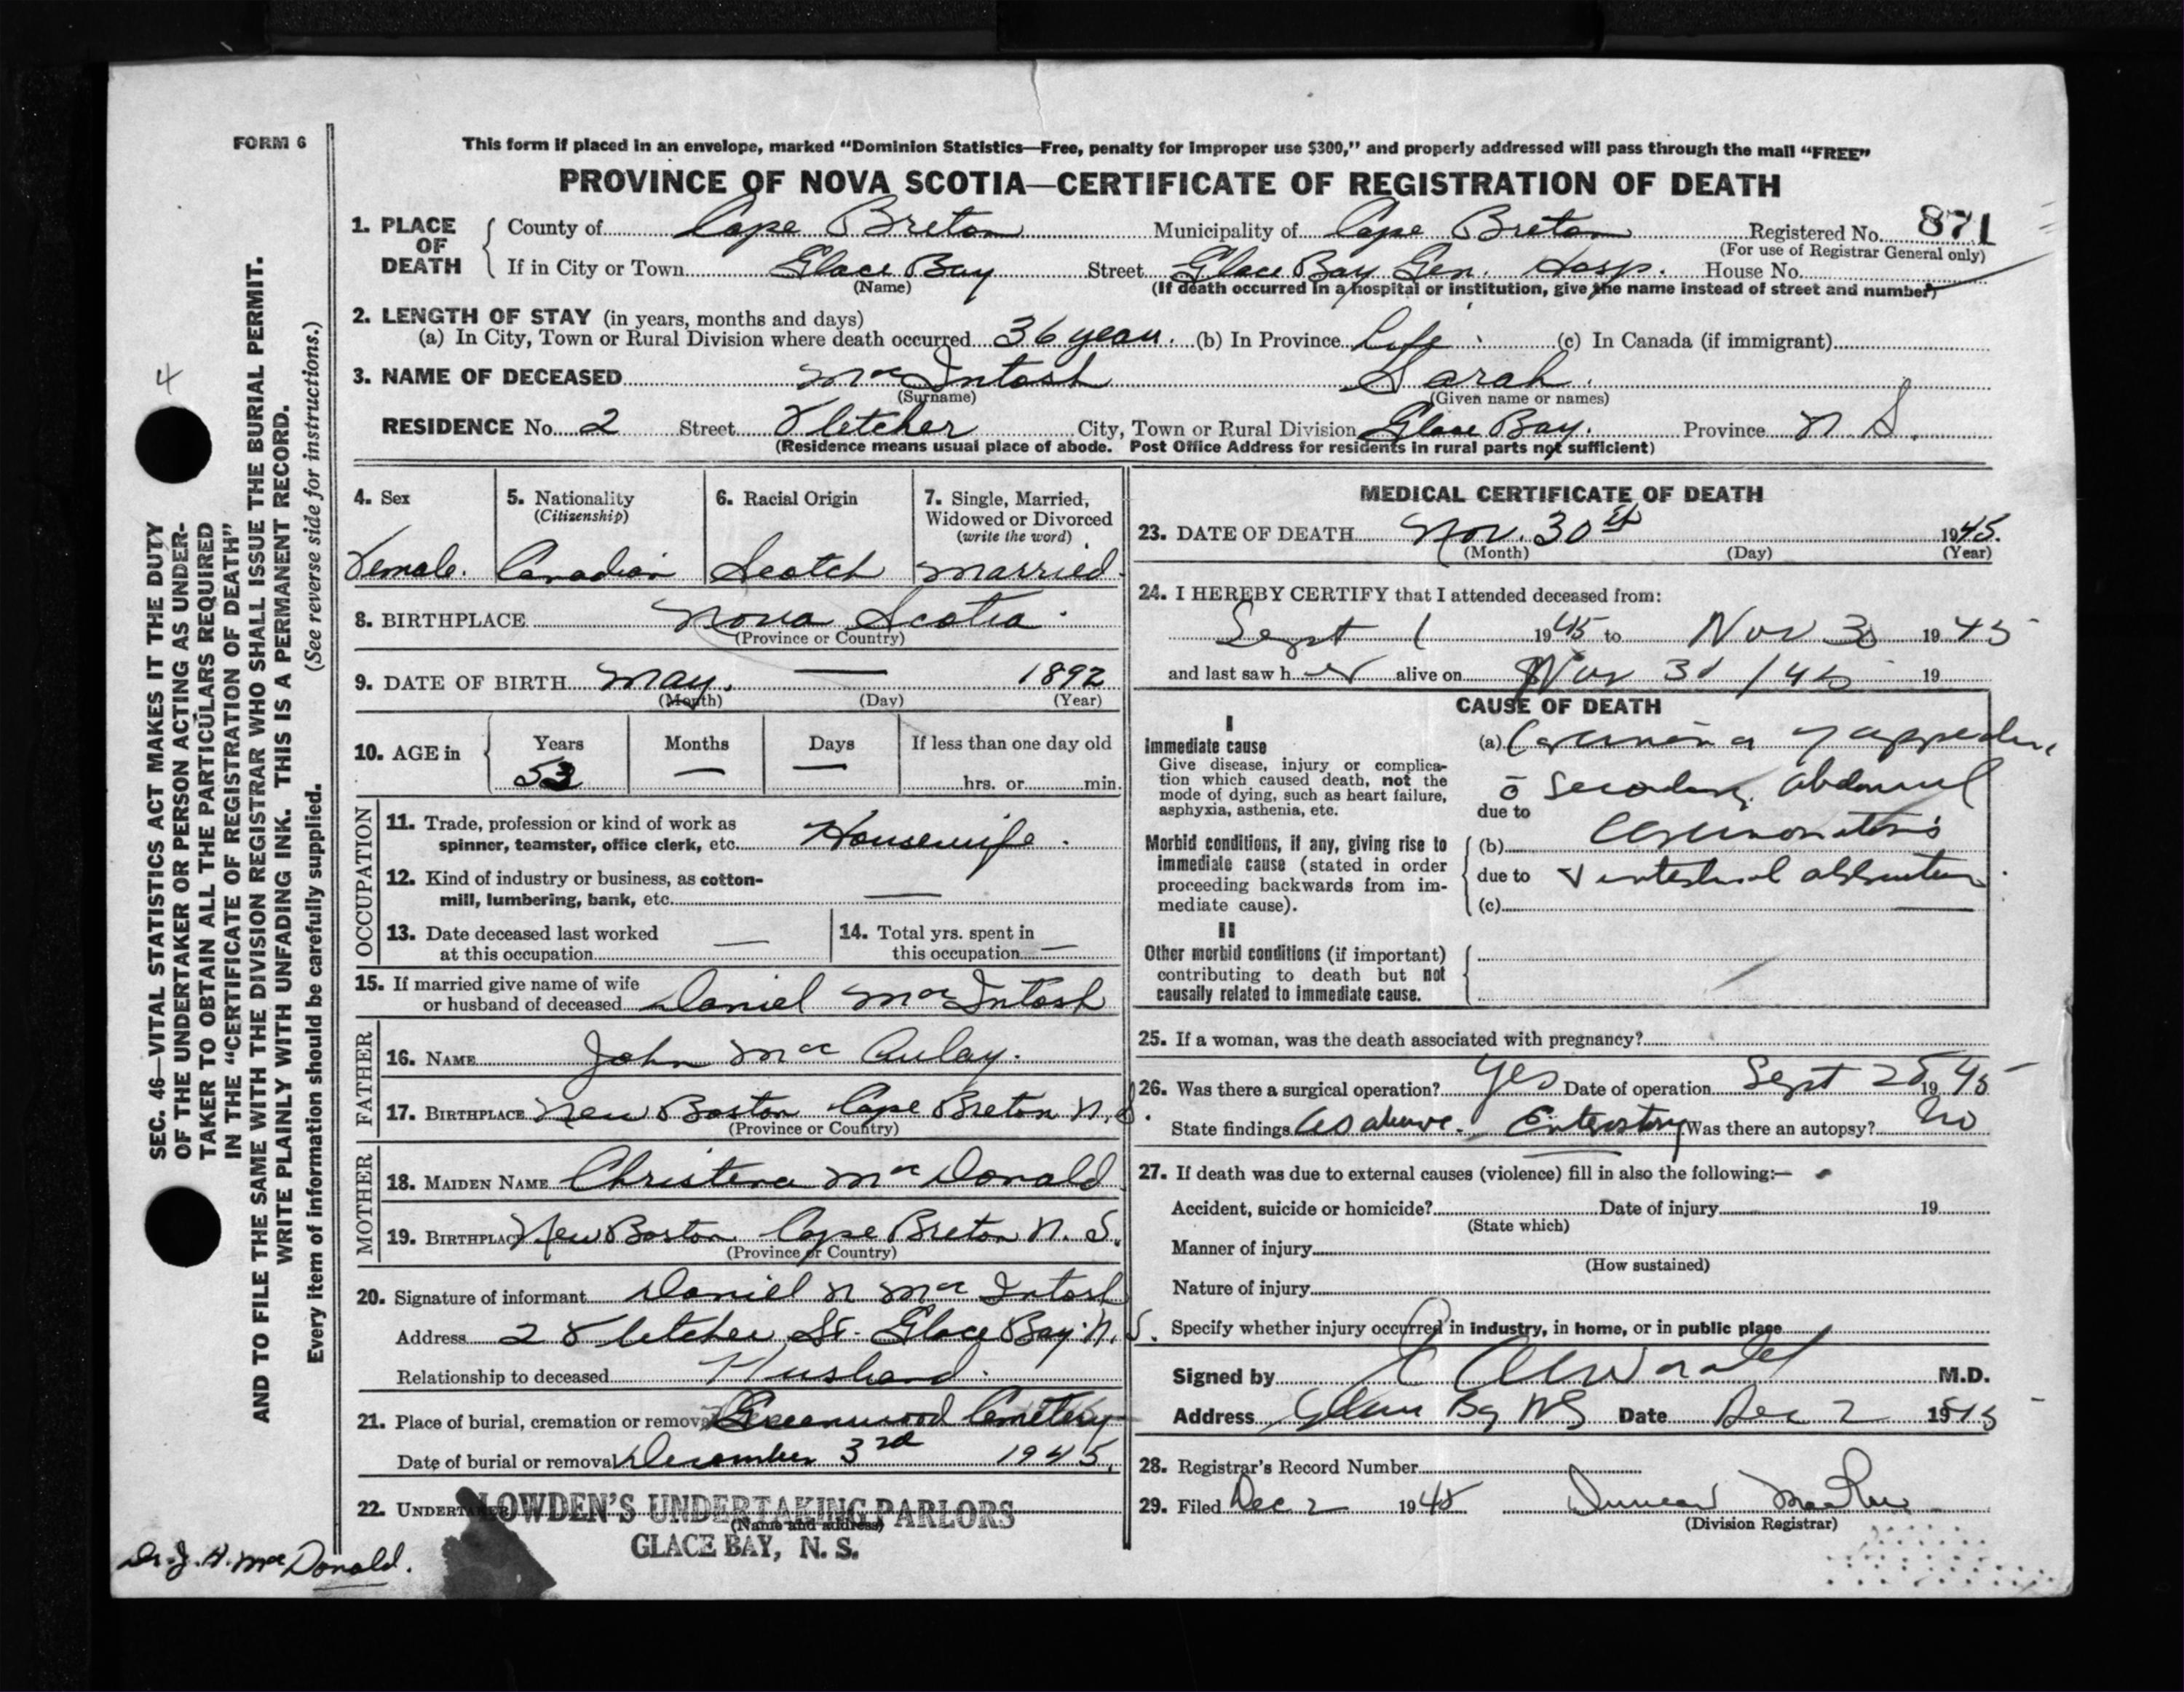 FORM 6
This form if placed in an envelope, marked “Dominion Statistics—Free, penalty for improper use $300,” and properly addressed will pass through the mail “FREE”
PROVINCE OF NOVA SCOTIA—CERTIFICATE OF REGISTRATION OF DEATH
1. PLACE OF DEATH County of Cape Breton Municipality of Cape Breton Registered No. 871
(For use of Registrar General only)
If in City or Town Glace Bay Street Glace Bay Gen. Hosp. House No.
(Name) (If death occurred in a hospital or institution, give the name instead of street and number)
2. LENGTH OF STAY (in years, months and days)
(a) In City, Town or Rural Division where death occurred 36 years. (b) In Province Life. (c) In Canada (if immigrant)
3. NAME OF DECEASED MacIntosh Sarah.
(Surname) (Given name or names)
RESIDENCE No. 2 Street Fletcher City, Town or Rural Division Glace Bay. Province N S.
(Residence means usual place of abode. Post Office Address for residents in rural parts not sufficient)
4. Sex 5. Nationality (Citizenship) 6. Racial Origin 7. Single, Married, Widowed or Divorced (write the word)
Female. Canadian Scotch Married.
8. BIRTHPLACE Nova Scotia.
(Province or Country)
9. DATE OF BIRTH May. — 1892
(Month) (Day) (Year)
10. AGE in Years Months Days If less than one day old
53 — — hrs. or min.
OCCUPATION
11. Trade, profession or kind of work as spinner, teamster, office clerk, etc. Housewife.
12. Kind of industry or business, as cotton-mill, lumbering, bank, etc. —
13. Date deceased last worked at this occupation — 14. Total yrs. spent in this occupation —
15. If married give name of wife or husband of deceased Daniel MacIntosh
FATHER
16. NAME John MacAulay.
17. BIRTHPLACE New Boston Cape Breton N.S.
(Province or Country)
MOTHER
18. MAIDEN NAME Christena MacDonald
19. BIRTHPLACE New Boston Cape Breton N. S.
(Province or Country)
20. Signature of informant Daniel N MacIntosh
Address 2 Fletcher St. Glace Bay. N. S.
Relationship to deceased Husband.
21. Place of burial, cremation or removal Greenwood Cemetery
Date of burial or removal December 3rd 1945.
22. UNDERTAKER LOWDEN'S UNDERTAKING PARLORS
(Name and address)
GLACE BAY, N. S.
Dr. J. H. MacDonald.
MEDICAL CERTIFICATE OF DEATH
23. DATE OF DEATH Nov. 30th 1945.
(Month) (Day) (Year)
24. I HEREBY CERTIFY that I attended deceased from:
Sept 1 1945 to Nov 30 1945
and last saw her alive on Nov 30/45 19
CAUSE OF DEATH
I
Immediate cause
Give disease, injury or complication which caused death, not the mode of dying, such as heart failure, asphyxia, asthenia, etc.
(a) Carcinoma of appendix
c̄ secondary abdominal
due to
Morbid conditions, if any, giving rise to immediate cause (stated in order proceeding backwards from immediate cause).
(b) carcinomatosis
due to & intestinal obstruction.
(c)
II
Other morbid conditions (if important) contributing to death but not causally related to immediate cause.
25. If a woman, was the death associated with pregnancy?
26. Was there a surgical operation? Yes Date of operation Sept 25 1945
State findings As above. Was there an autopsy? No
27. If death was due to external causes (violence) fill in also the following:—
Accident, suicide or homicide? Date of injury 19
(State which)
Manner of injury
(How sustained)
Nature of injury
Specify whether injury occurred in industry, in home, or in public place
Signed by M.D.
Address Glace Bay NS Date Dec 2 1945
28. Registrar's Record Number
29. Filed Dec 2 1945 Duncan
(Division Registrar)
4
SEC. 46—VITAL STATISTICS ACT MAKES IT THE DUTY
OF THE UNDERTAKER OR PERSON ACTING AS UNDER-
TAKER TO OBTAIN ALL THE PARTICULARS REQUIRED
IN THE “CERTIFICATE OF REGISTRATION OF DEATH”
AND TO FILE THE SAME WITH THE DIVISION REGISTRAR WHO SHALL ISSUE THE BURIAL PERMIT.
WRITE PLAINLY WITH UNFADING INK. THIS IS A PERMANENT RECORD.
Every item of information should be carefully supplied. (See reverse side for instructions.)